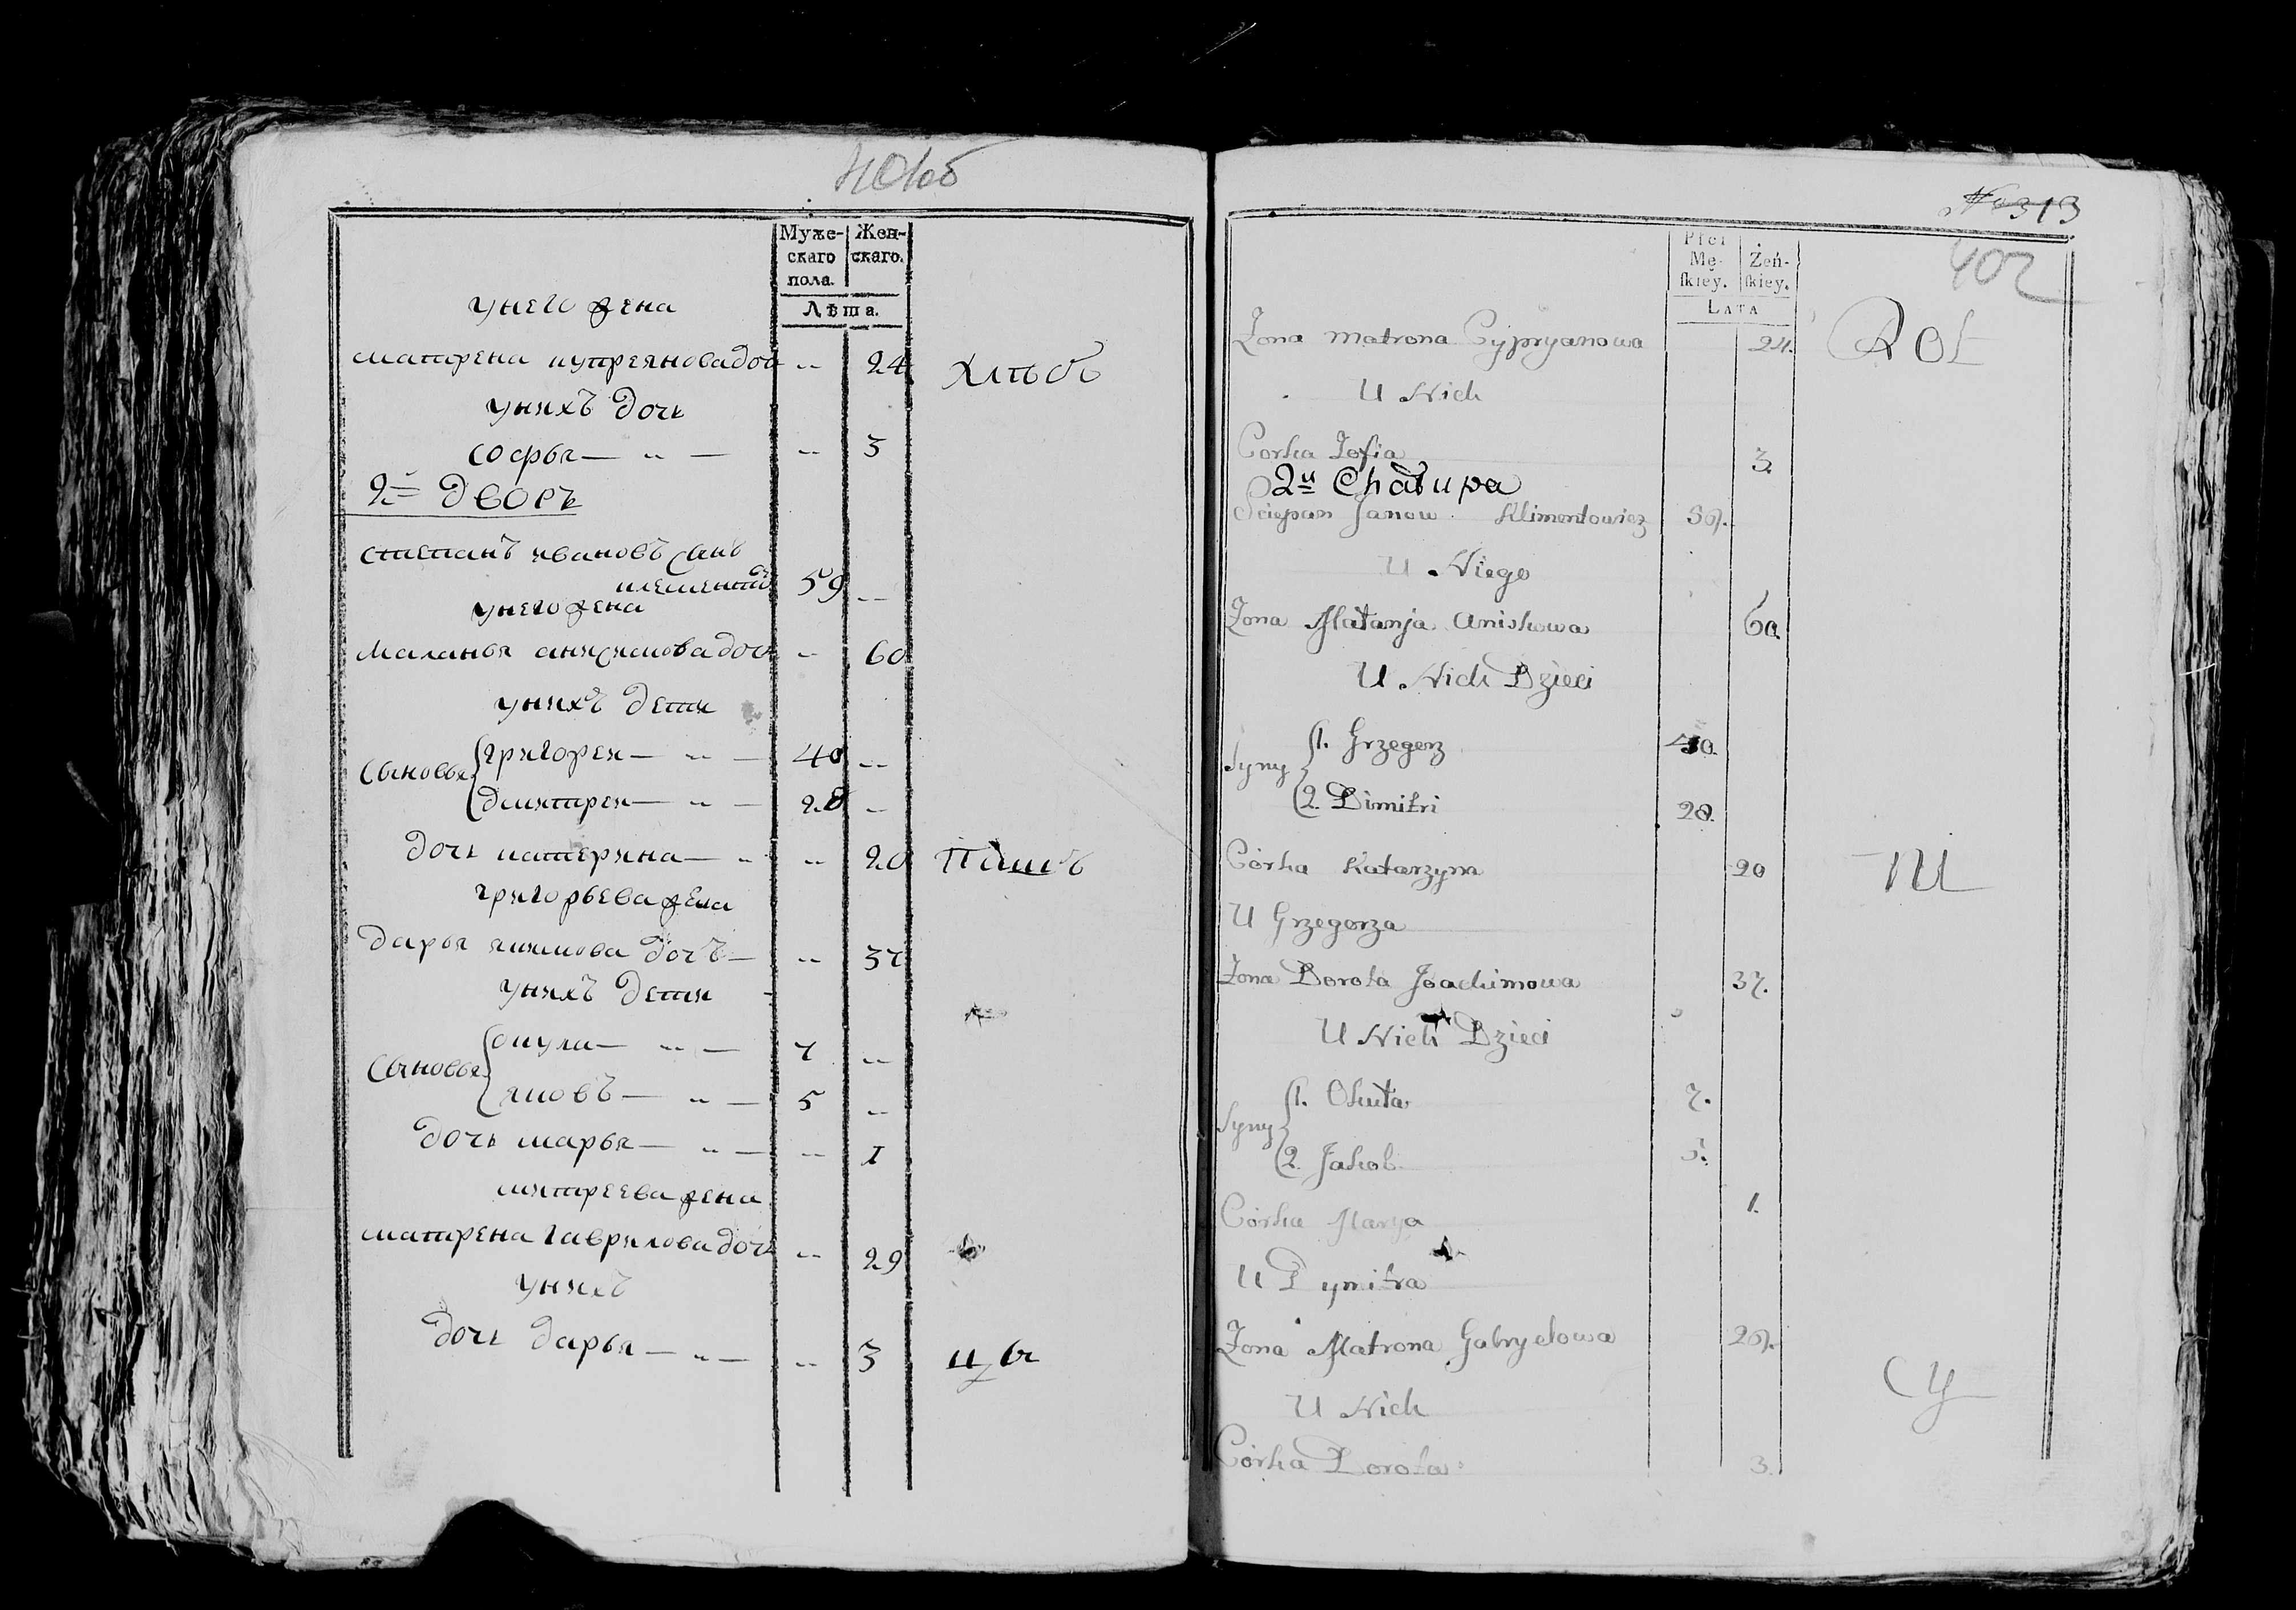 401об
Муже- Жен-
скаго скаго.
пола.
Лѣта.
у него жена
матрена купреянова доч -- 24
Хлѣбъ
у нихъ дочь
софья — " — -- 3
2й дворъ
степанъ ивановъ сынъ
59 --
у него жена
маланья анисимова доч -- 60
у нихъ дети
сыновья
григореи — " — 40 --
дмитреи — " — 28 --
дочь катерина — " -- 20
григорьева жена
дарья якимова дочъ — -- 37
у нихъ дети
сыновья
окула — " — 7 --
яковъ — " — 5 --
дочь марья — " — -- 1
митреева жена
матрена гаврилова доч -- 29
у нихъ
дочь дарья — " — -- 3
№ 313
402
Płci
Mę- Żeń-
ſkiey. ſkiey.
LATA
Żona Matrona Cypryanowa 24.
U Nich
Corka Zofia 3.
2a Chałupa
Sciepan Janow Klimontowicz 59.
U Niego
Żona Małanja Aniskowa 60
U Nich Dzieci
Syny
1. Grzegerz 40.
2. Dimitri 28.
Córka Katarzyna 20
U Grzegorza
Żona Dorota Joachimowa 37.
U Nich Dzieci
Syny
1. Okuła 7.
2. Jakob 5.
Córka Marya 1.
U Dymitra
Żona Matrona Gabryelowa 29.
U Nich
Córka Dorota 3.